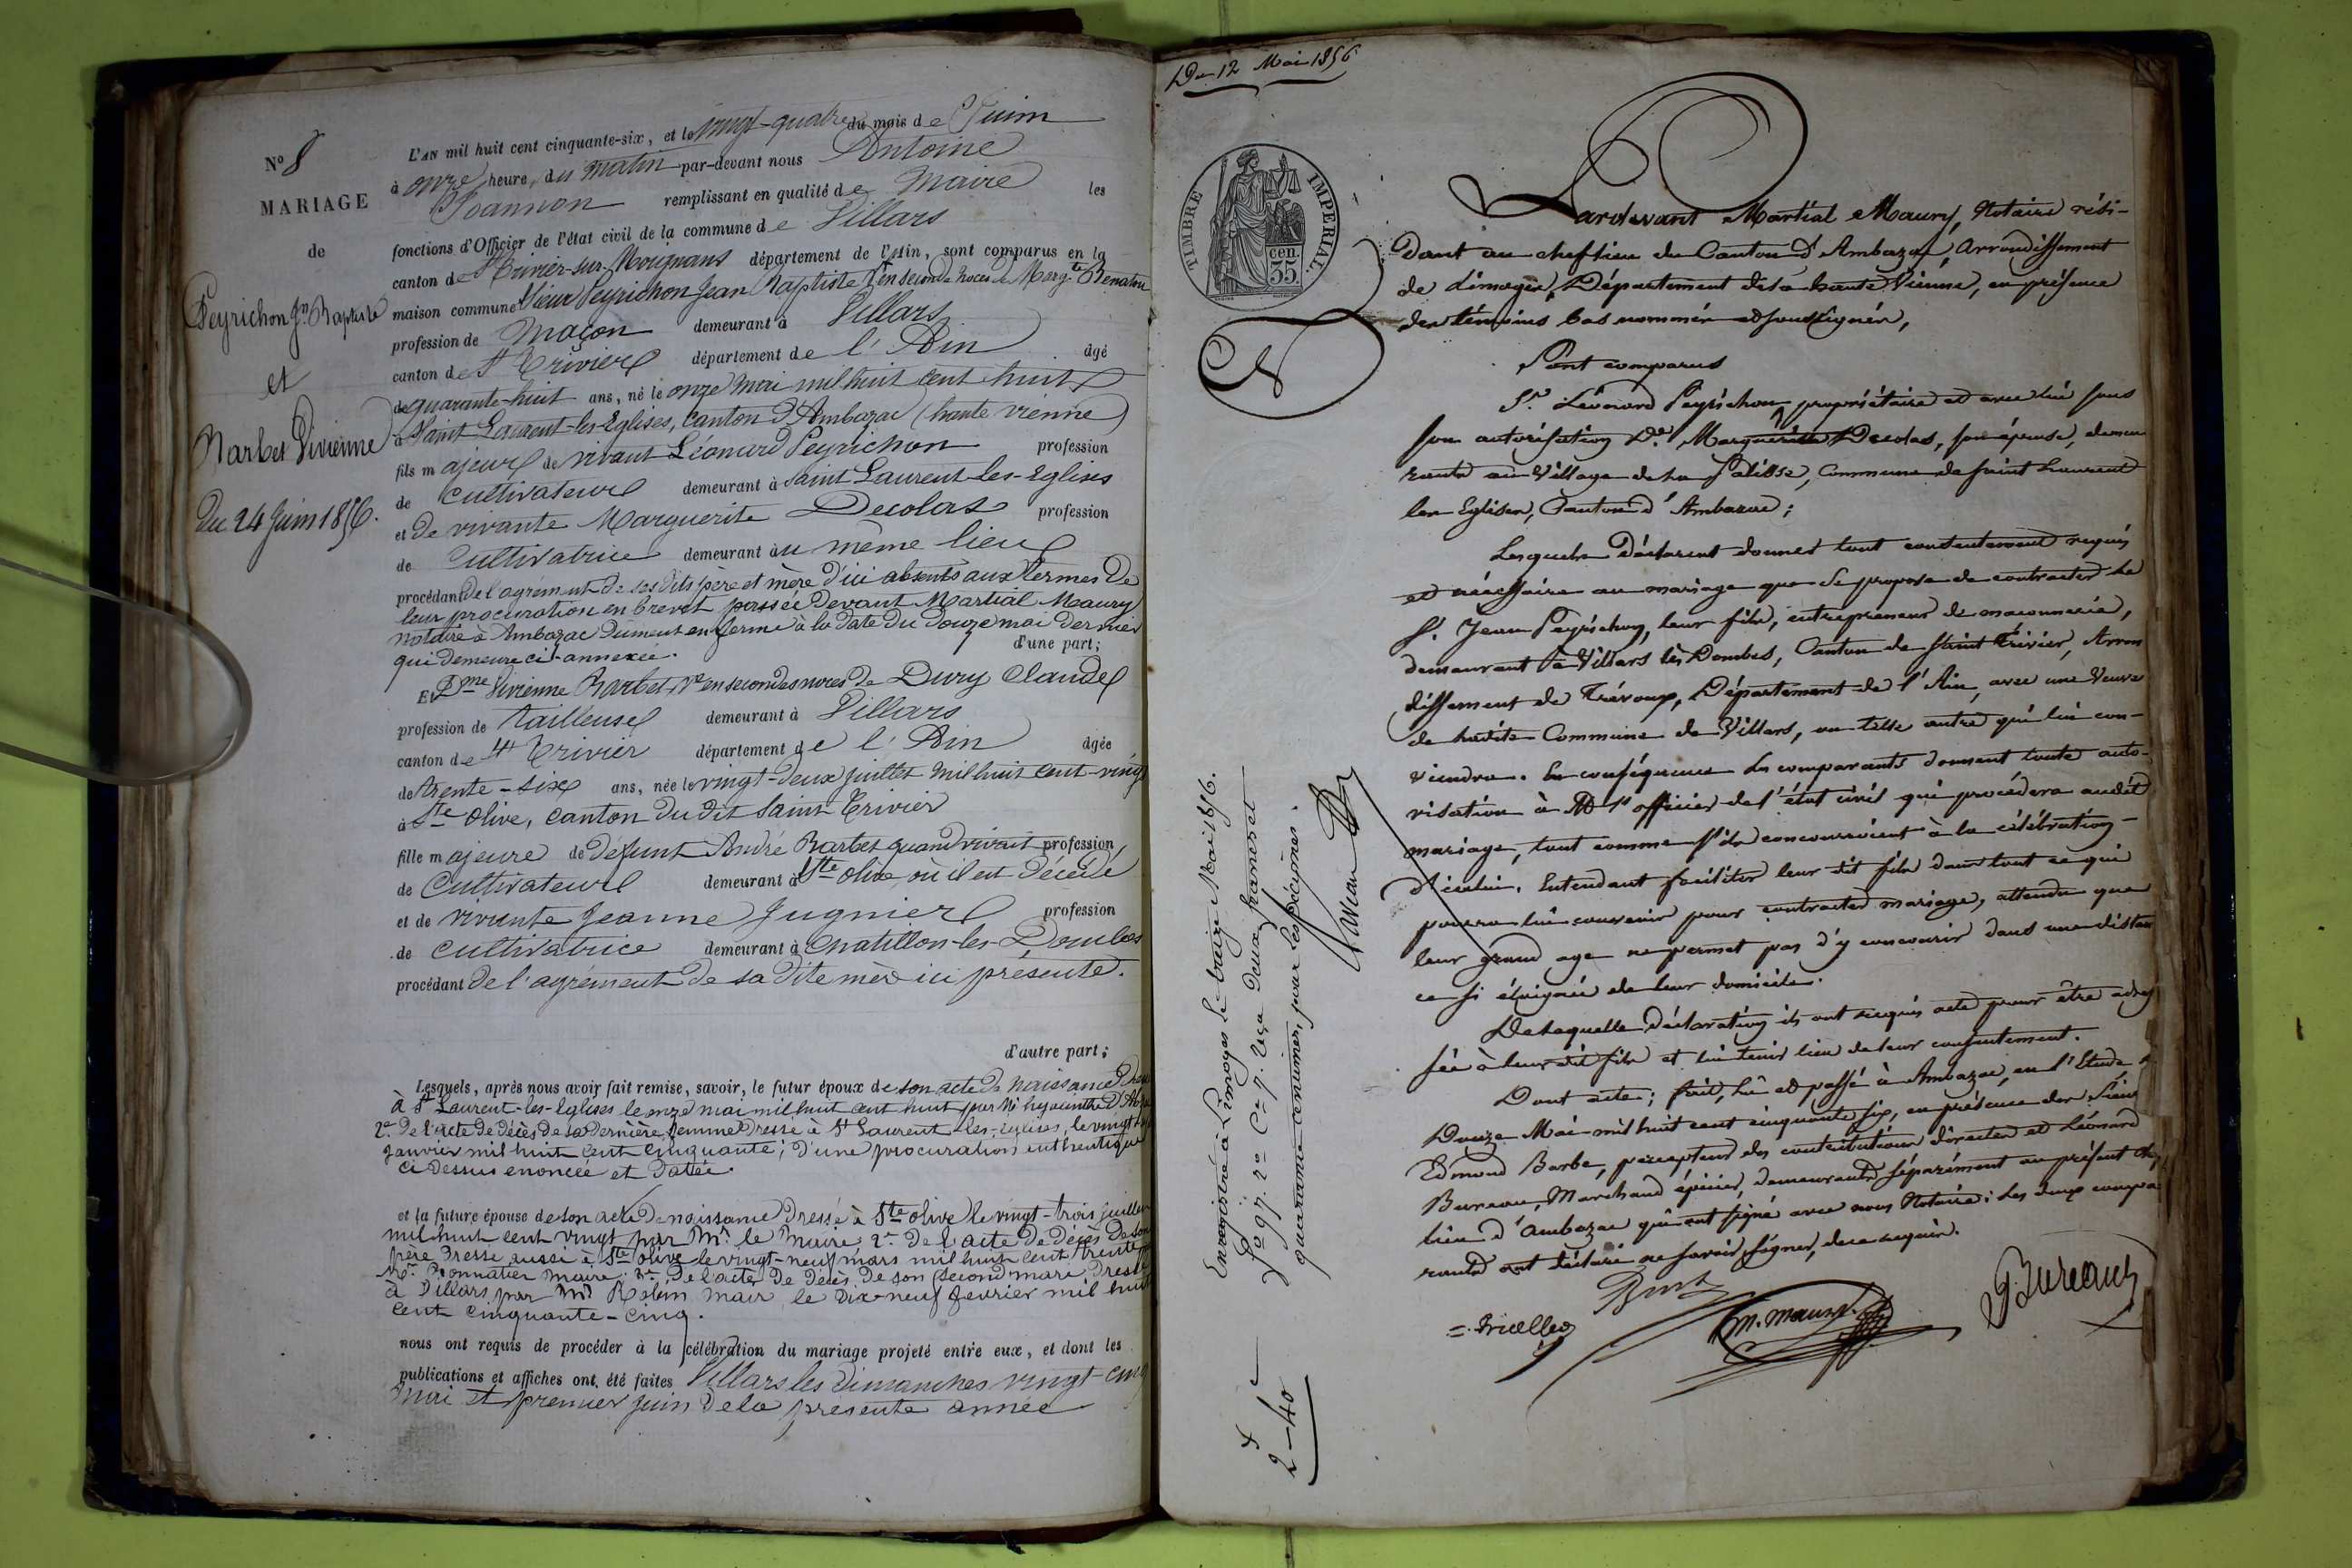 N° 8
MARIAGE
de
Peyrichon Jn Baptiste
et
Barbet Vivienne
du 24 Juin 1856.
L'AN mil huit cent cinquante-six, et le vingt-quatre du mois de Juin
à onze heure du matin par-devant nous Antoine
Joannon remplissant en qualité de Maire les
fonctions d'Officier de l'état civil de la commune de Villars
canton de St Trivier-sur-Moignans département de l'Ain, sont comparus en la
maison commune Sieur Peyrichon Jean Baptiste Vf en seconde noces de Marg.te
profession de Maçon demeurant à Villars
canton de St Trivier département de l'Ain âgé
de quarante-huit ans, né le onze mai mil huit cent huit
à Saint Laurent-les-Eglises, canton d'Ambazac (haute vienne)
fils majeur de vivant Léonard Peyrichon profession
de Cultivateur demeurant à Saint Laurent-les-Eglises
et de vivante Marguerite Decolas profession
de Cultivatrice demeurant au même lieu
procédant de l'agrément de ses dits père et mère d'ici absents aux termes de
leur procuration en brevet passée devant Martial Maury
notaire à Ambazac dument en forme à la date du douze mai dernier
qui demeure ci-annexée. d'une part;
Et Dme Vivienne Barbet, Ve en secondes noces de Dury Claude
profession de tailleuse demeurant à Villars
canton de St Trivier département de l'Ain âgée
de trente-six ans, née le vingt-deux juillet mil huit cent-vingt
à Ste Olive, canton du dit Saint Trivier
fille majeure de défunt André Barbet quand vivait profession
de Cultivateur demeurant à Ste Olive, où il est décédé
et de vivante Jeanne Jugnier profession
de cultivatrice demeurant à Chatillon-les-Dombes
procédant de l'agrément de sa dite mère ici présente.
d'autre part;
Lesquels, après nous avoir fait remise, savoir, le futur époux de son acte de naissance
à St Laurent-les-Eglises le onze mai mil huit cent huit par Mr hyacinthe
2° de l'acte de décès de sa dernière femme dressé à St Laurent-les-Eglises, le vingt
janvier mil huit cent cinquante; d'une procuration authentique
ci dessus énoncée et datée.
et la future épouse de son acte de naissance dressé à Ste Olive le vingt-trois juillet
mil huit cent vingt par Mr le Maire 2° de l'acte de décès de son
père dressé aussi à Ste Olive le vingt-neuf mars mil huit cent trente
Mr maire; 3° de l'acte de décès de son second mari dressé
à Villars par Mr maire le dix-neuf février mil huit
cent cinquante-cinq.
nous ont requis de procéder à la célébration du mariage projeté entre eux, et dont les
publications et affiches ont été faites Villars les dimanches vingt-cinq
mai et premier juin de la présente année
Du 12 Mai 1856
TIMBRE IMPÉRIAL
35 cen.
Pardevant Martial Maury, Notaire rési-
dant au cheflieu du Canton d'Ambazac, Arrondissement
de Limoges, Département de la haute Vienne, en présence
des témoins bas nommés et soussignés,
Sont comparus
Sr Léonard Peyrichon, propriétaire et avec lui sous
son autorisation De Marguerite Decolas, son épouse, demeu
rants au Village de la Salesse, Commune de Saint Laurent
les Eglises, Canton d'Ambazac;
Lesquels déclarent donner tout consentement requis
et nécessaire au mariage que se propose de contracter le
Sr Jean Peyrichon, leur fils, entrepreneur de maçonnerie,
demeurant à Villars les Dombes, Canton de Saint Trivier, Arron
dissement de Trévoux, Département de l'Ain, avec une Veuve
de ladite Commune de Villars, ou telle autre qui lui con-
viendra. En conséquence les comparants donnent toute auto-
risation à Mr l'officier de l'état civil qui procédera audit
mariage, tout comme s'ils concourraient à la célébration
d'icelui. Entendant faciliter leur dit fils dans tout ce qui
pourra lui convenir pour contracter mariage, attendu que
leur grand age ne permet pas d'y concourir dans une distan
ce si éloignée de leur domicile.
De laquelle déclaration ils ont requis acte pour être adres
sée à leur dit fils et lui tenir lieu de leur consentement.
Dont acte; fait, lû et passé à Ambazac, en l'Etude, le
Douze Mai mil huit cent cinquante six, en présence des Sieurs
Edmond Barbe, percepteur des contributions directes et Léonard
Bureau, Marchand épicier, demeurants séparément au présent chef
lieu d'Ambazac qui ont signé avec nous Notaire; les deux compa
rants ont déclaré ne savoir signer, de ce requis.
M. Maury
Bureau
Enregistré à Limoges le treize Mai 1856.
f° 97. 2° Ce 7. reçu deux francs et
quarante centimes, pour les décimes.
2-40